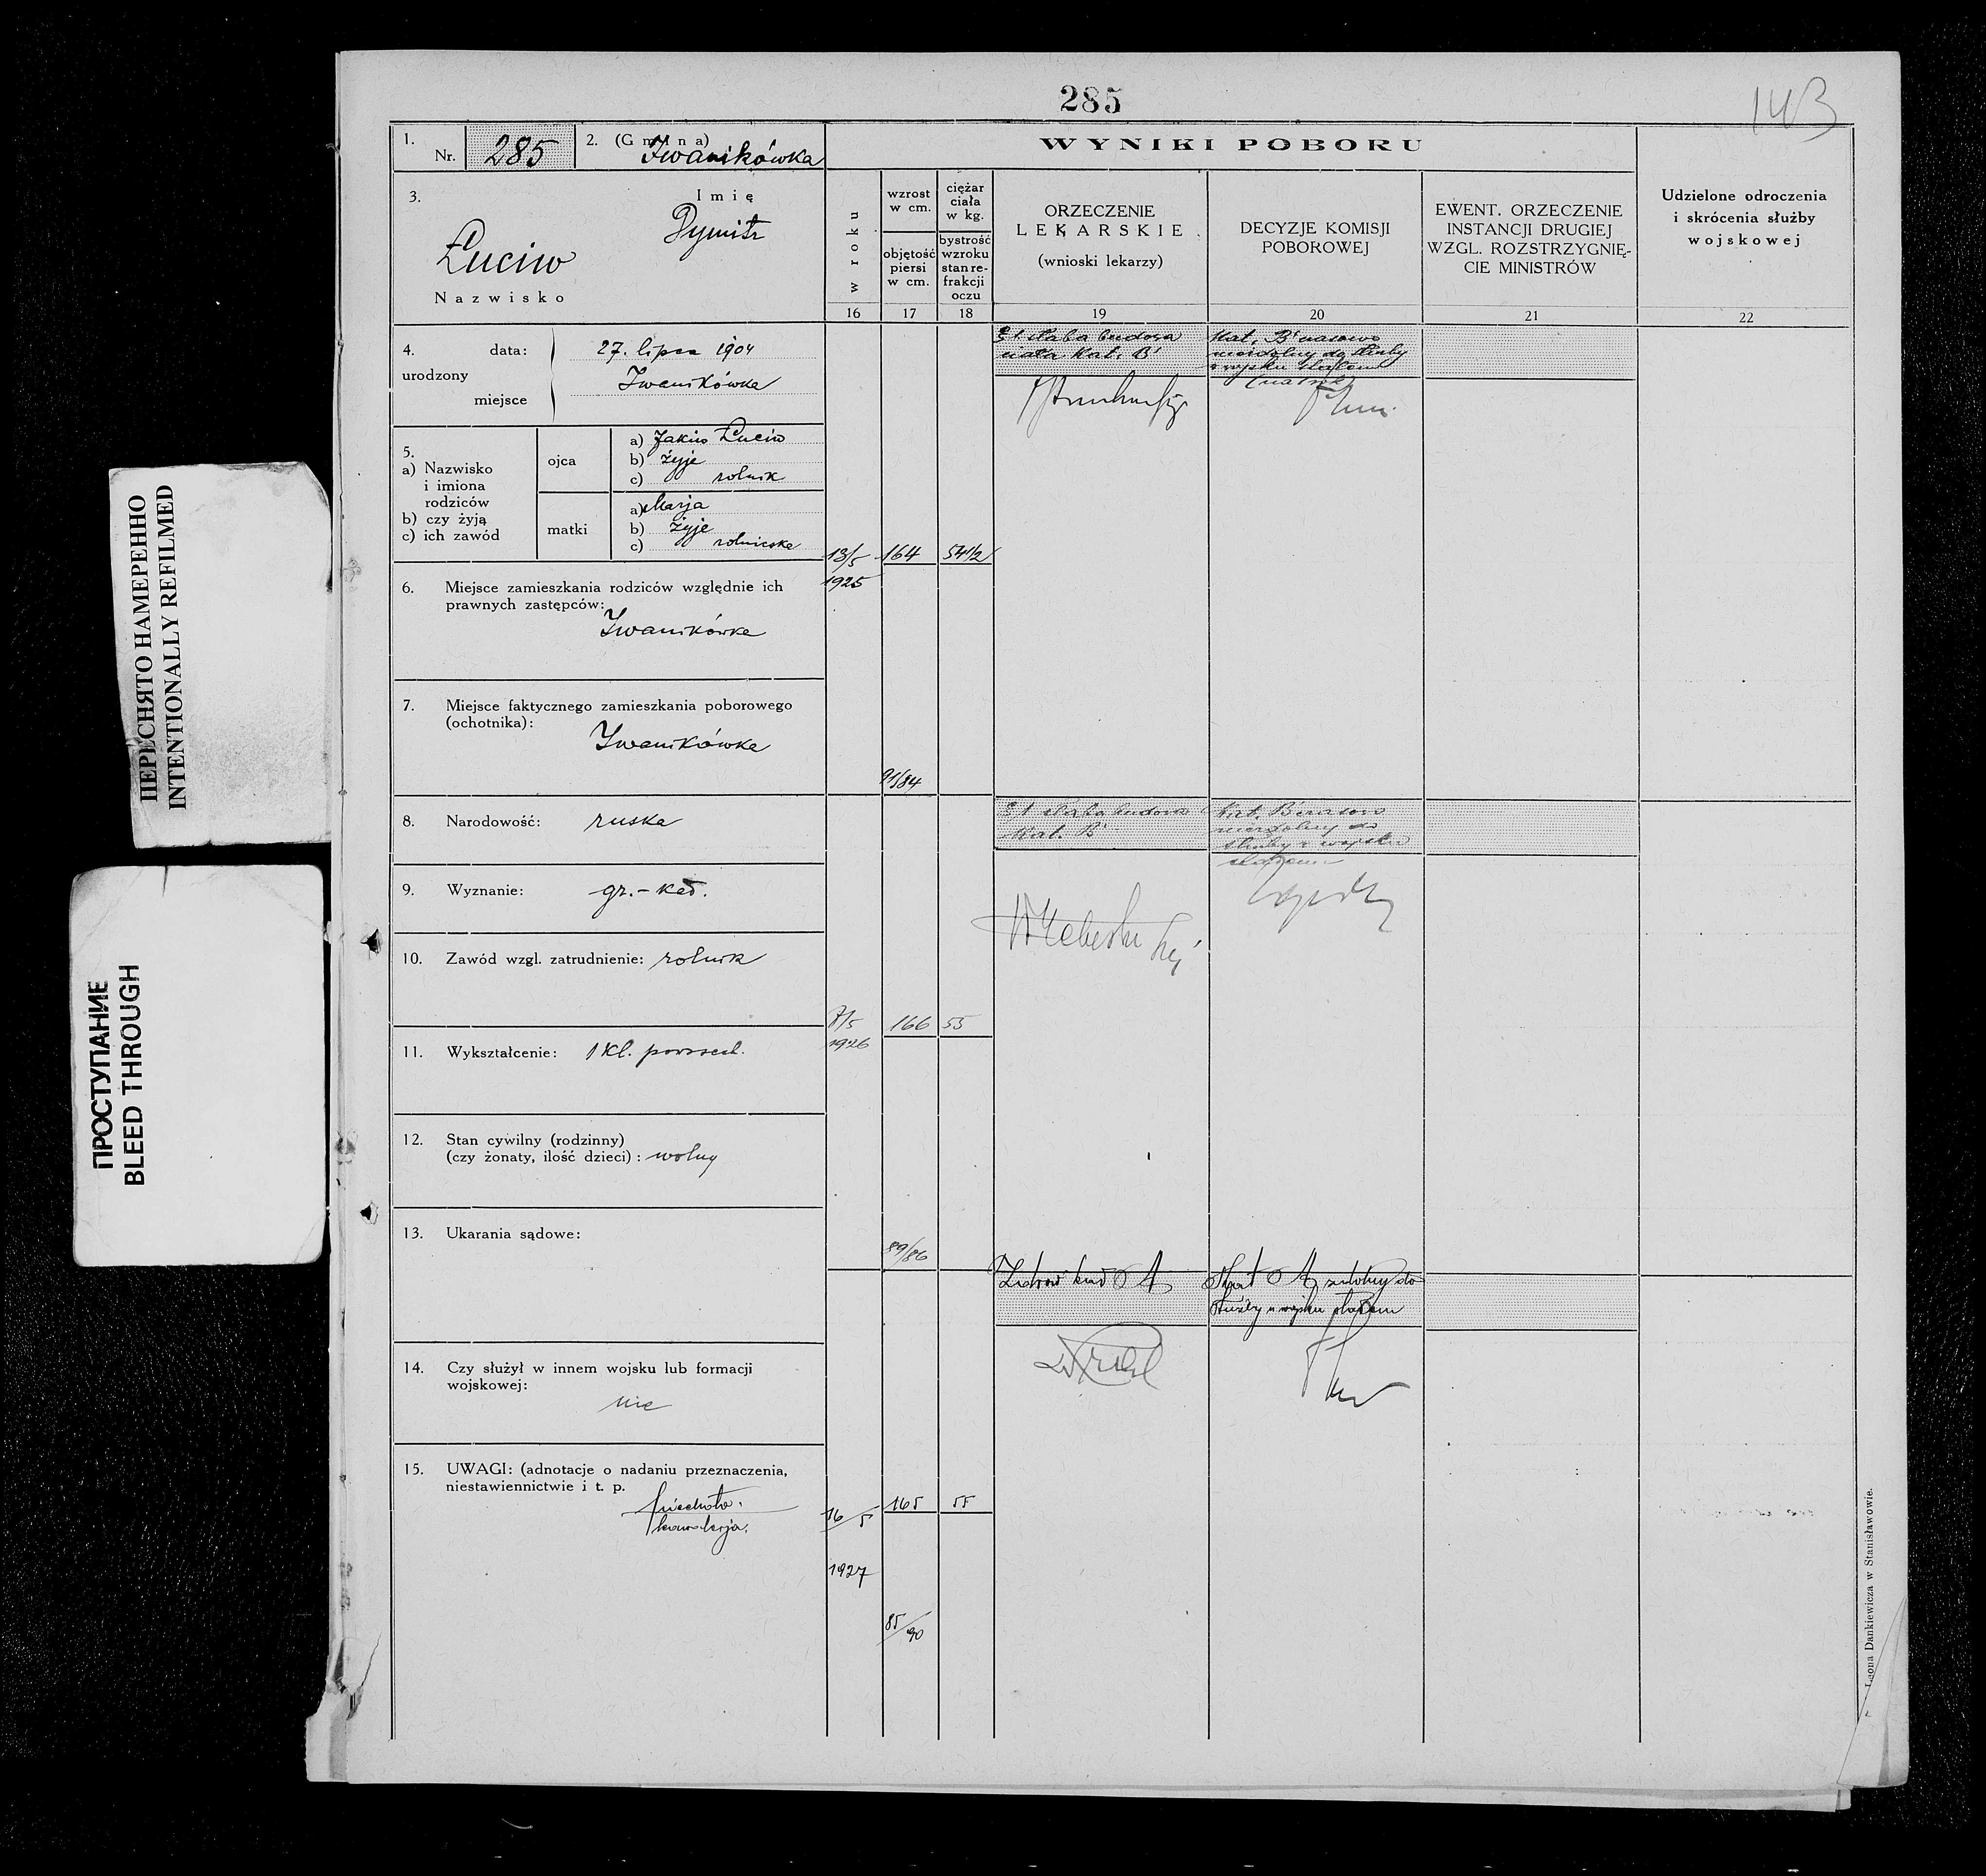 285
143
1.
Nr. 285
2. (Gmina) Iwanikówka
WYNIKI POBORU
3.
Imię
Dymitr
Łuciw
Nazwisko
w roku
wzrost w cm.
objętość piersi w cm.
ciężar ciała w kg.
bystrość wzroku stan re-frakcji oczu
ORZECZENIE
LEKARSKIE
(wnioski lekarzy)
DECYZJE KOMISJI
POBOROWEJ
EWENT. ORZECZENIE
INSTANCJI DRUGIEJ
WZGL. ROZSTRZYGNIĘ-
CIE MINISTRÓW
Udzielone odroczenia
i skrócenia służby
wojskowej
16 17 18 19 20 21 22
4. data: 27. lipca 1904
urodzony
Iwanikówka
miejsce
słaba budowa
ciała Kat. B
Kat. B czasowo
niezdolny do służby
w wojsku stałem
5.
a) Nazwisko
i imiona
rodziców
b) czy żyją
c) ich zawód
ojca
a) Jakiw Łuciw
b) żyje
c) rolnik
matki
a) Marja
b) żyje
c) rolniczka
13/5 164 54 1/2
1925
6. Miejsce zamieszkania rodziców względnie ich
prawnych zastępców:
Iwanikówka
7. Miejsce faktycznego zamieszkania poborowego
(ochotnika):
Iwanikówka
91/84
8. Narodowość: ruska
słaba budowa
Kat. B
Kat. B czasowo
niezdolny do
służby w wojsku
stałem
9. Wyznanie: gr.-kat.
10. Zawód wzgl. zatrudnienie: rolnik
7/5 166 55
1926
11. Wykształcenie: 1 kl. powszech.
12. Stan cywilny (rodzinny)
(czy żonaty, ilość dzieci): wolny
13. Ukarania sądowe:
89/86
Zdrów kat A
Kat A zdolny do
służby w wojsku stałem
14. Czy służył w innem wojsku lub formacji
wojskowej:
nie
15. UWAGI: (adnotacje o nadaniu przeznaczenia,
niestawiennictwie i t. p.
piechota.
kawalerja.
16/5 165 55
1927
85/90
Leona Dankiewicza w Stanisławowie.
ПЕРЕСНЯТО НАМЕРЕННО
INTENTIONALLY REFILMED
ПРОСТУПАНИЕ
BLEED THROUGH